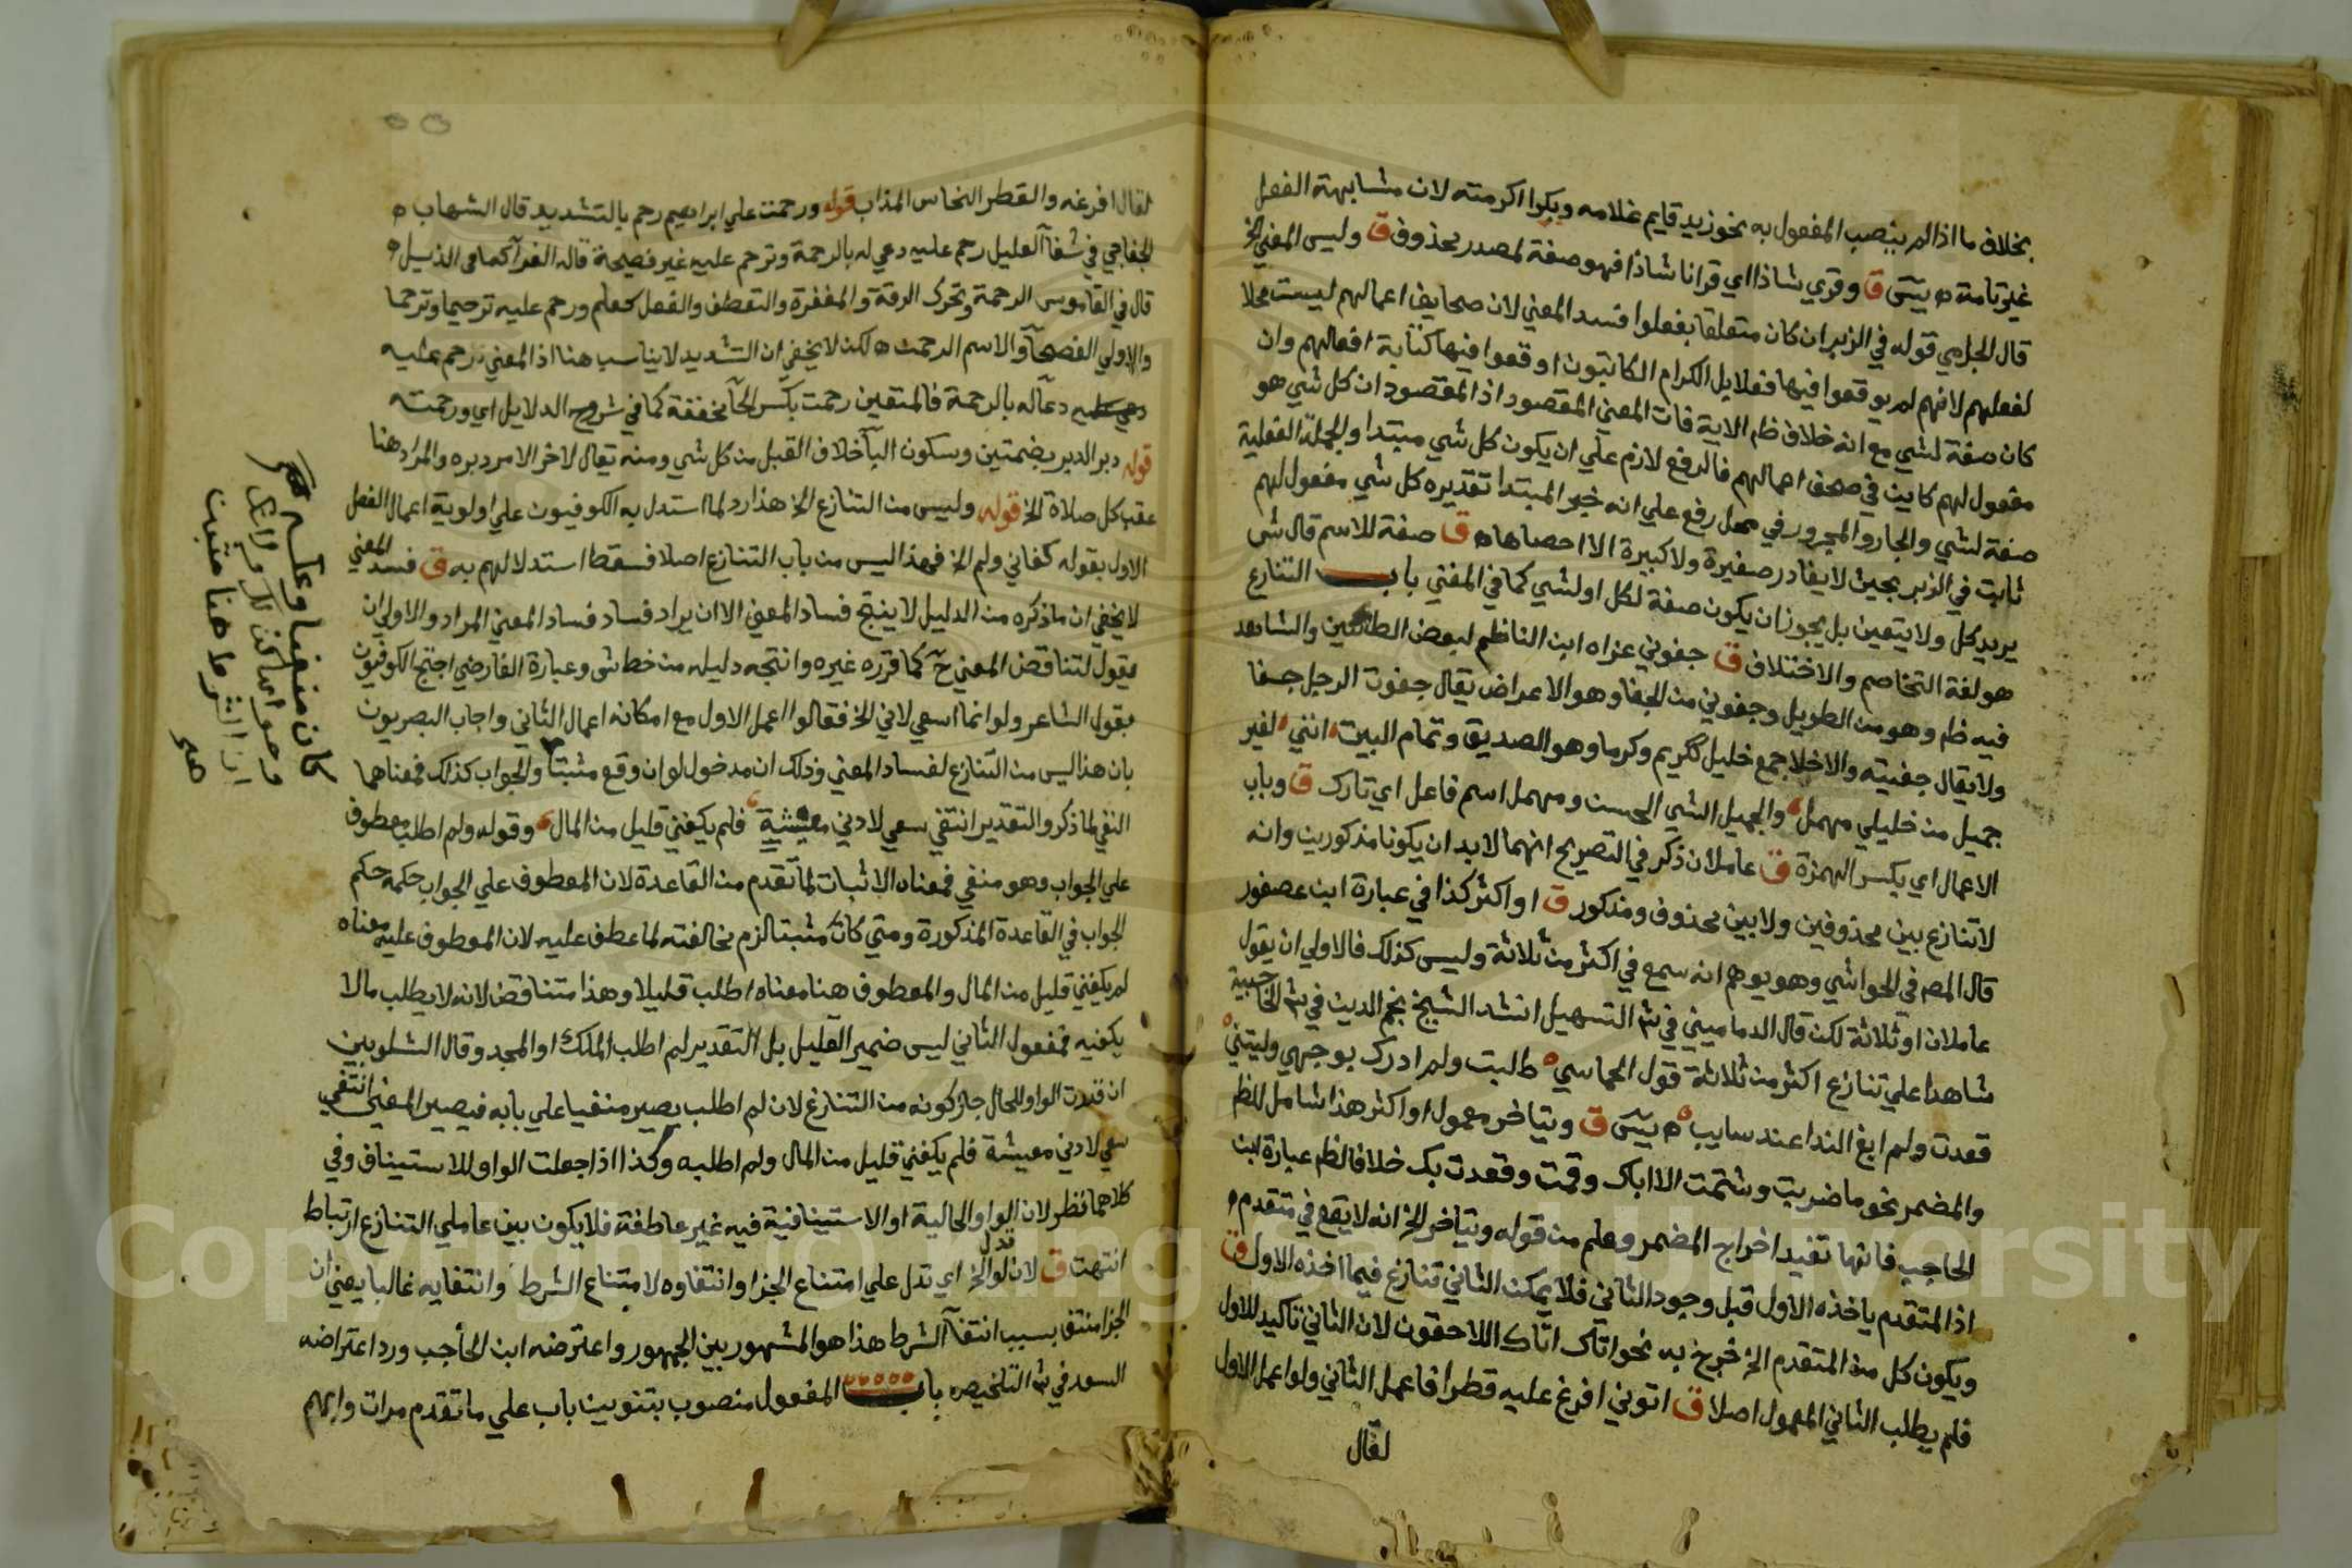 بخلاف ما اذا لم ينصب المفعول به نحو زيد قايم غلامه وبكرا اكرمته لان مشابهة الفعل
غير تامة ه يسَ ق وقري شاذا اي قرانا شاذا فهو صفة لمصدر محذوف ق وليس المعني الخ
قال الحلبي قوله في الزبر ان كان متعلقا بفعلوا فسد المعني لان صحايف اعمالهم ليست محلا
لفعلهم لانهم لم يوقعوا فيها فعلا بل الكرام الكاتبون اوقعوا فيها كتابة افعالهم وان
كان صفة لشي مع انه خلاف ظم الاية فات المعني المقصود اذ المقصود ان كل شي هو
مفعول لهم كاين في صحف اعمالهم فالرفع لازم علي ان يكون كل شي مبتدا والجملة الفعلية
صفة لشي والجار والمجرور في محل رفع علي انه خبر المبتدا تقديره كل شي مفعول لهم
ثابت في الزبر بحيث لا يغادر صغيرة ولا كبيرة الا احصاها ه ق صفة للاسم قال ش
يريد كل ولا يتعين بل يجوز ان يكون صفة لكل او لشي كما في المغني باب التنازع
هو لغة التخاصم والاختلاف ق جفوني عزاه ابن الناظم لبعض الطائيين والشاهد
فيه ظم وهو من الطويل وجفوني من الجفا وهو الاعراض يقال جفوت الرجل جفا
ولا يقال جفيته والاخلا جمع خليل ككريم وكرما وهو الصديق وتمام البيت انني لغير
جميل من خليلي مهمل والجميل الشي الحسن ومهمل اسم فاعل اي تارك ق وباب
الاعمال اي بكسر الهمزة ق عاملان ذكر في التصريح انهما لابد ان يكونا مذكورين وانه
لا تنازع بين محذوفين ولا بين محذوف ومذكور ق او اكثر كذا في عبارة ابن عصفور
قال المص في الحواشي وهو يوهم انه سمع في اكثر من ثلاثة وليس كذلك فالاولي ان يقول
عاملان او ثلاثة لكن قال الدماميني في شر التسهيل انشد الشيخ نجم الدين في شر الحاجبية
شاهدا علي تنازع اكثر من ثلاثة قول الحماسي ه طلبت ولم ادرك بوجهي وليتني
قعدت ولم ابغ الندا عند سايب ه ه يسَ ق ويتاخر معمول او اكثر هذا شامل للظم
والمضمر نحو ما ضربت وشتمت الا اباك وقمت وقعدت بك خلافا لظم عبارة ابن
الحاجب فانها تفيد اخراج المضمر وعلم من قوله ويتاخر الخ انه لا يقع في متقدم ه
اذ المتقدم ياخذه الاول قبل وجود الثاني فلا يمكن الثاني تنازع فيما اخذه الاول ق
ويكون كل من المتقدم الخ خرج به نحو اتاك اتاك اللاحقون لان الثاني تاكيد للاول
فلم يطلب الثاني المعمول اصلا ق اتوني افرغ عليه قطرا فاعمل الثاني ولو اعمل الاول
لقال
لقال افرغه والقطر النحاس المذاب قوله ورحمت علي ابراهيم رحم بالتشديد قال الشهاب ه
الخفاجي في شفآ الغليل رحم عليه دعي له بالرحمة وترحم عليه غير فصيحة قاله الفرآ كما في الذيل ه
قال في القاموس الرحمة وتحرك الرقة والمغفرة والتعطف والفعل كعلم ورحم عليه ترحيما وترحما
والاولي الفصحآ والاسم الرحمت ه لكن لا يخفي ان التشديد لا يناسب هنا اذ المعني رحم عليه
دعآ له بالرحمة فالمتعين رحمت بكسر الحآ مخففة كما في شروح الدلايل اي ورحمته
قوله دبر الدبر بضمتين وسكون البآ خلاف القبل من كل شي ومنه يقال لاخر الامر دبره والمراد هنا
عقب كل صلاة الخ قوله وليس من التنازع الخ هذا رد لما استدل به الكوفيون علي اولوية اعمال الفعل
الاول بقوله كفاني ولم الخ فهذا ليس من باب التنازع اصلا فسقط استدلالهم به ق فسد المعني
لا يخفي ان ما ذكره من الدليل لا ينتج فساد المعني الا ان يراد فساد فساد المعني المراد والاولي ان
يقول لتناقض المعني ح كما قرره غيره وانتجه دليله من خط ش وعبارة الفارضي احتج الكوفيون
بقول الشاعر ولو انما اسعي لادني الخ فقالوا اعمل الاول مع امكانه اعمال الثاني واجاب البصريون
بان هذا ليس من التنازع لفساد المعني وذلك ان مدخول لو ان وقع مثبتا والجواب كذلك فمعناهما
النفي لما ذكر والتقدير انتفي سعي لادني معيشة فلم يكفني قليل من المال وقوله ولم اطلب معطوف
علي الجواب وهو منفي فمعناه الاثبات لما تقدم من القاعدة لان المعطوف علي الجواب حكمه حكم
الجواب في القاعدة المذكورة ومتي كان مثبتا لزم مخالفته لما عطف عليه لان المعطوف عليه معناه
لم يكفني قليل من المال والمعطوف هنا معناه اطلب قليلا وهذا متناقض لانه لا يطلب ما لا
يكفيه فمفعول الثاني ليس ضمير القليل بل التقدير لم اطلب الملك او المجد وقال الشلوبين
ان قدرت الواو للحال جاز كونه من التنازع لان لم اطلب يصير منفيا علي بابه فيصير المعني انتفي
سعي لادني معيشة فلم يكفني قليل من المال ولم اطلبه وكذا اذا جعلت الواو للاستيناف وفي
كلاهما نظر لان الواو الحالية او الاستينافية فيه غير عاطفة فلا يكون بين عاملي التنازع ارتباط
انتهت ق لان لو تدل الخ اي تدل علي امتناع الجزا وانتفاوه لامتناع الشرط وانتفايه غالبا يعني ان
الجزا منتف بسبب انتفآ الشرط هذا هو المشهور بين الجمهور واعترضه ابن الحاجب ورد اعتراضه
السعد في شر التلخيص ه باب المفعول منصوب بتنوين باب علي ما تقدم مرات وابهم
كان منفيا وعكسه
ان الشرط هنا مثبت
Copyright © King Saud University